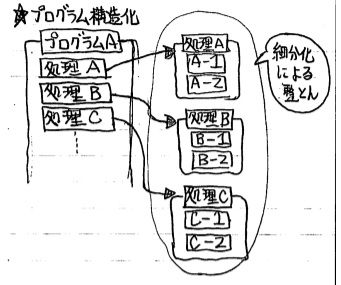 ☆プログラム構造化
プログラムA
処理A
処理B
処理C
処理A
A-1
A-2
処理B
B-1
B-2
処理C
C-1
C-2
細分化
による
整とん